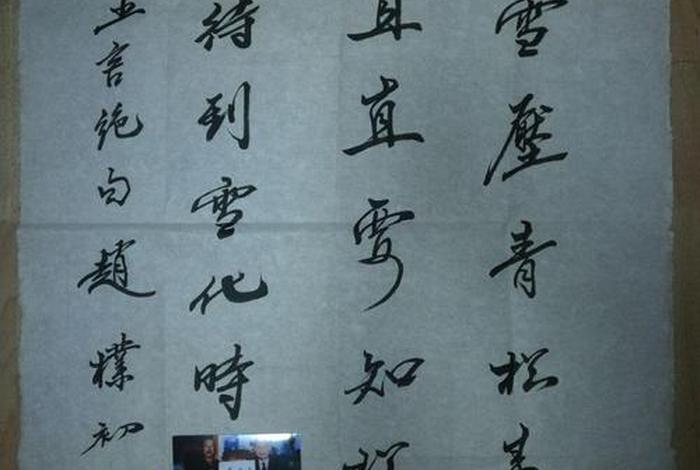 雪壓青松青
且直要知松
待到雪化時
五言絕句趙樸初